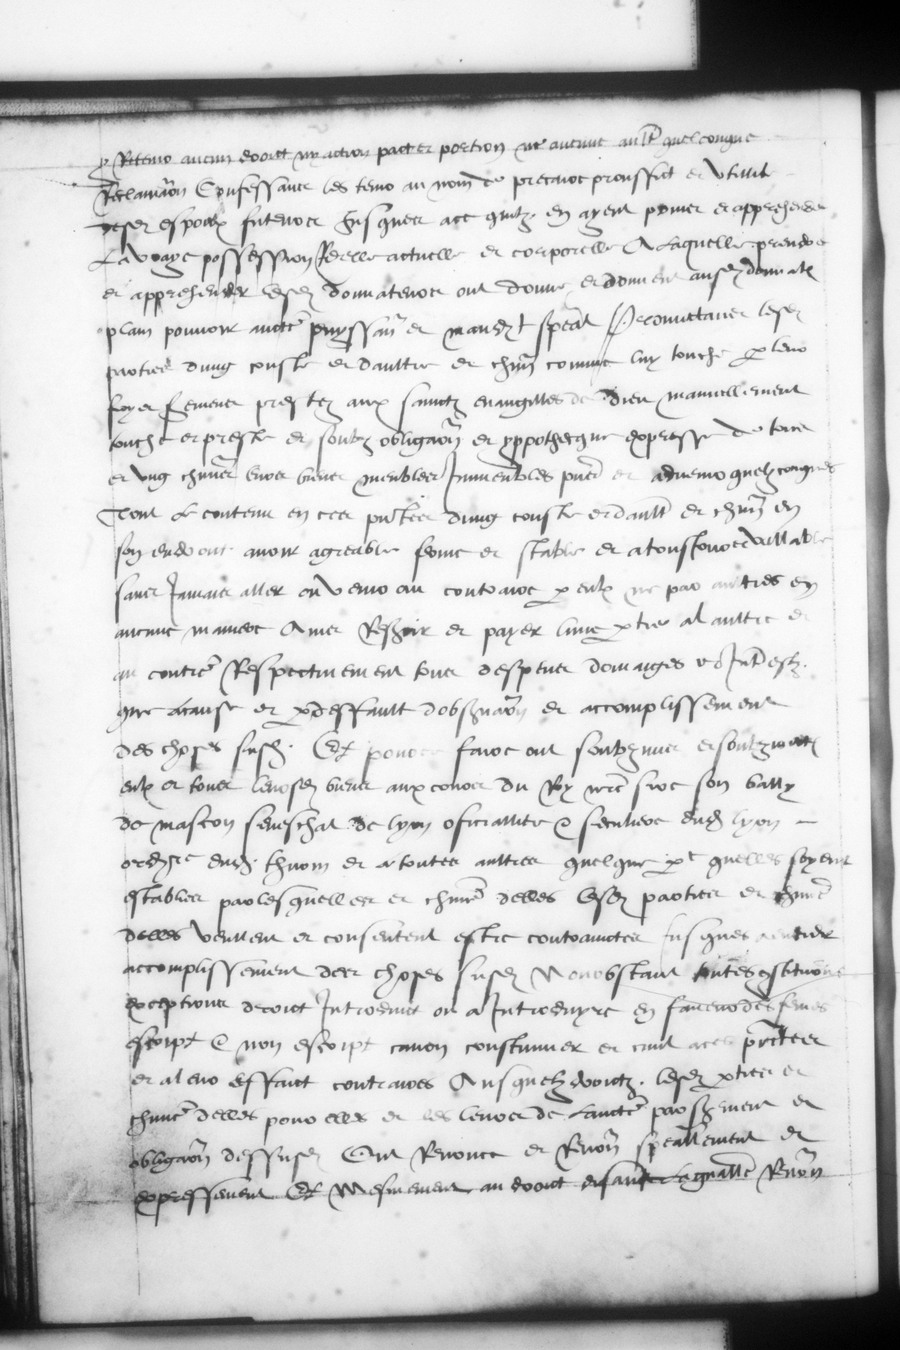 Retenir aucun droict ny action part ne portion ne aucune aultre quelconque
Reclamaon Confessans les tenir au nom de precaire prouffict et utilite
desd espoulx futeurs Jusques acc quilz en ayent prinse et apprehende
La vraye possession Reelle actuelle et corporelle A laquelle prendre
et apprehender lesd donnateurs ont donne et donnent ausd donnatz
plain pouvoir auctte puyssan et mandt speal Promectans lesd
parties dung couste et daultre et chun comme luy touche p leur
foy et serment prestez aux sainctz evangilles de Dieu manuellement
touche et preste et soubz obligaon et yppothecque expresse de tous
et ung chun leurs biens meubles Immeubles pns et advenir quelzconques
Tout le contenu en ces pntes dung couste et daultre et chun en
son endroict avoir agreable ferme et stable et a tousjours vallable
sans Jamais aller ou venir au contraire p eulx ne par aultres en
aucune maniere Ains Rendre et payer lune ptie a laultre et
au contre Respectivement tous despens dommaiges et Intestz
que a cause et p deffault dobsvaon et accomplissement
des choses susd Et pource faire ont soubzmis et soubzmectz
eulx et tous leursd biens aux cours du Roy nre sire son bally
de mascon seneschal de lyon officiallite & seculiere dud lyon
ordre dud thurin et a toutes aultres quelque pt quelles soyent
establies par lesquelles et chune delles lesd parties et chune
delles veullent et consentent estre contrainctes Jusques a entier
accomplissement des choses susd Nonobstant toutes constituons
exceptions droict Introduict ou a Introduyre en faveur des femmes
escript & non escript canon coustumier et civil a ces pntes
et a leur effaict contraires Ausquelz droictz lesd pties et
chune delles pour elles et les leurs de lauctte par serment et
obligaon dessusd Ont Renonce et Renon spealement et
expressement Et Mesmement au droict disant la gnalle Renon